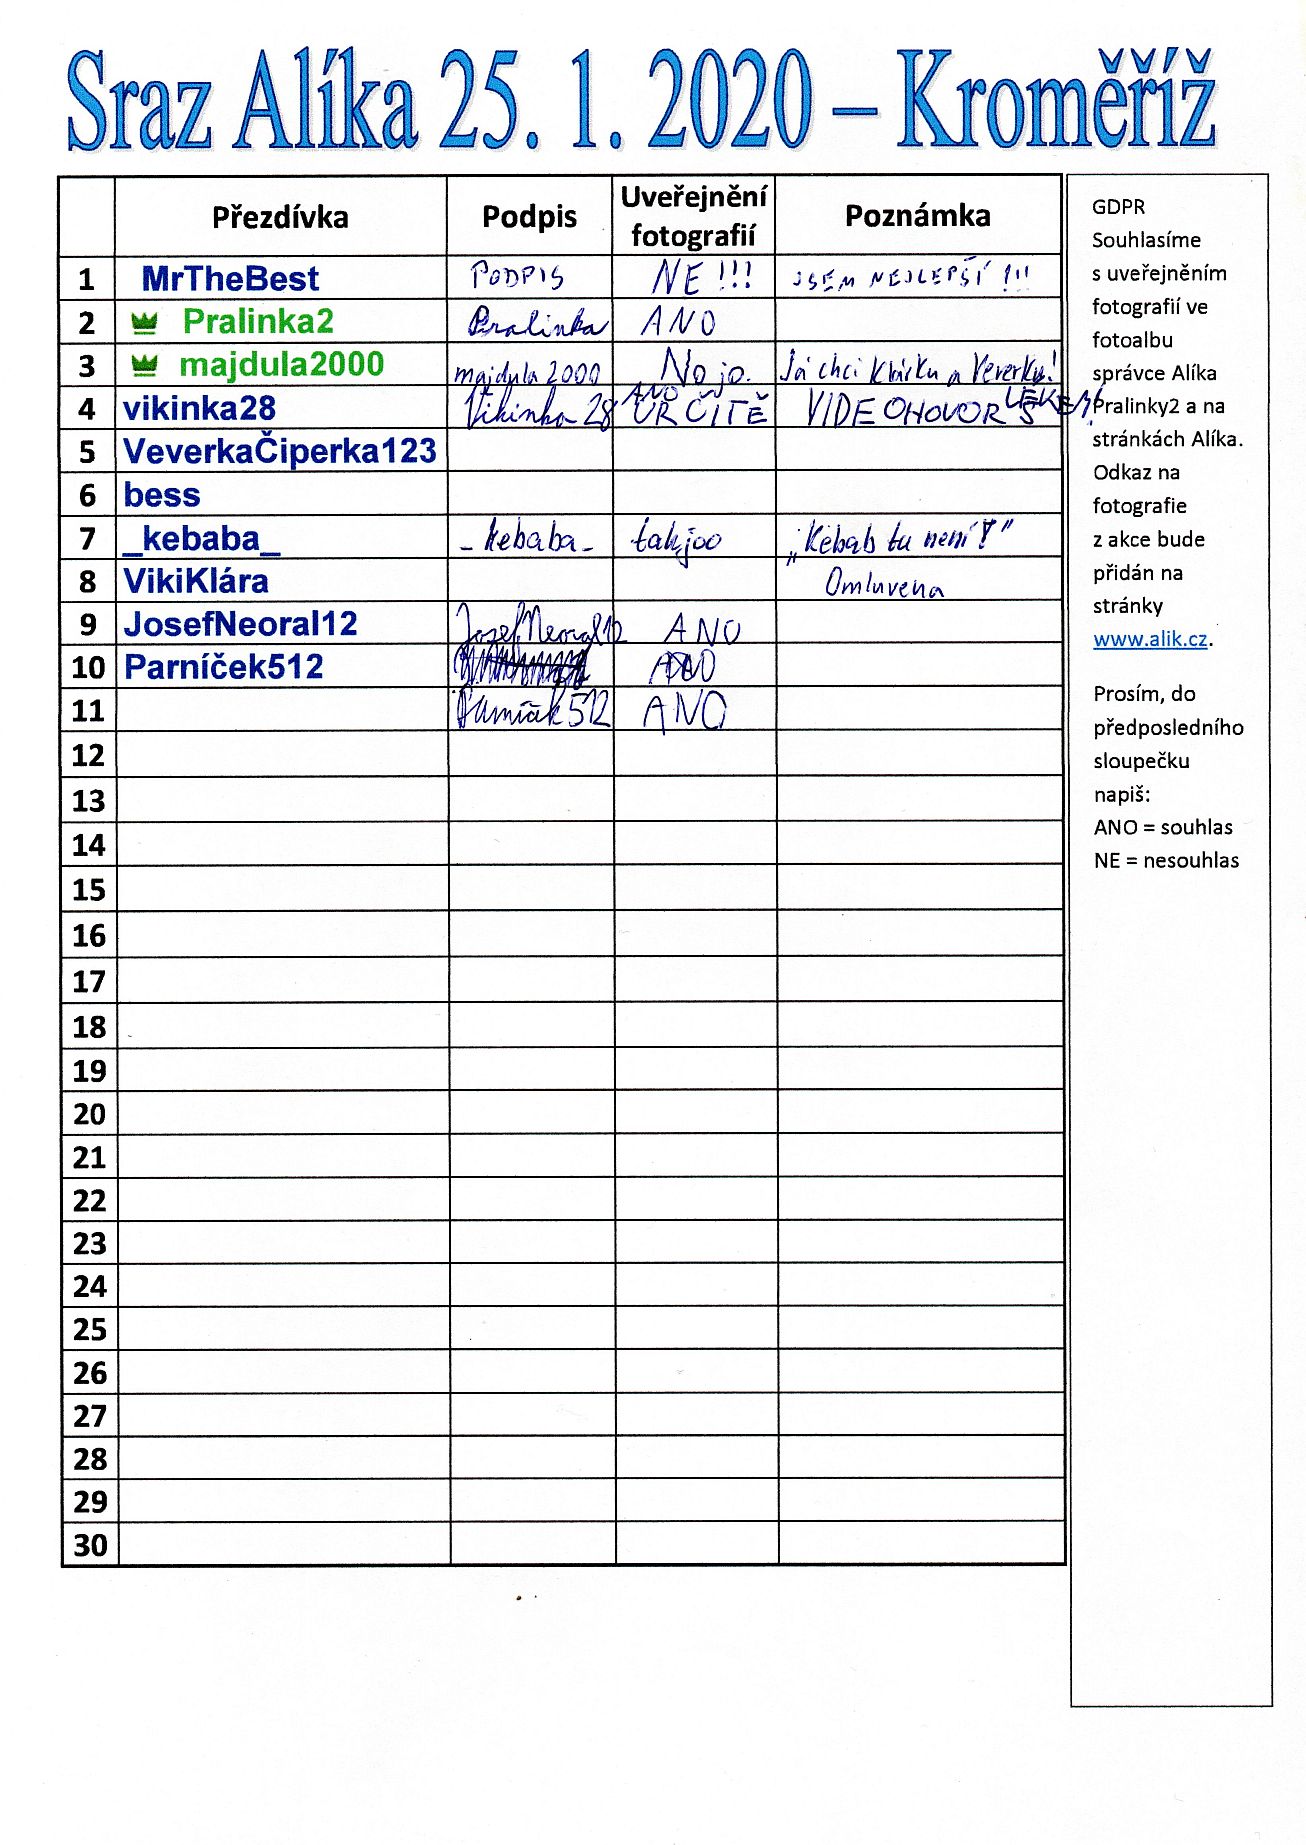 Sraz Alíka 25. 1. 2020 – Kroměříž
Přezdívka Podpis Uveřejnění fotografií Poznámka
1 MrTheBest PODPIS NE!!! JSEM NEJLEPŠÍ!!!
2 Pralinka2 Pralinka ANO
3 majdula2000 majdula2000 No jo. Já chci Klárku a Veverku!
4 vikinka28 Vikinka 28 ANO URČITĚ VIDEOHOVOR S
5 VeverkaČiperka123
6 bess
7 _kebaba_ _kebaba_ takjoo „Kebab tu není!"
8 VikiKlára Omluvena
9 JosefNeoral12 JosefNeoral12 ANO
10 Parníček512
11 ANO
12
13
14
15
16
17
18
19
20
21
22
23
24
25
26
27
28
29
30
GDPR
Souhlasíme
s uveřejněním
fotografií ve
fotoalbu
správce Alíka
Pralinky2 a na
stránkách Alíka.
Odkaz na
fotografie
z akce bude
přidán na
stránky
www.alik.cz.
Prosím, do
předposledního
sloupečku
napiš:
ANO = souhlas
NE = nesouhlas